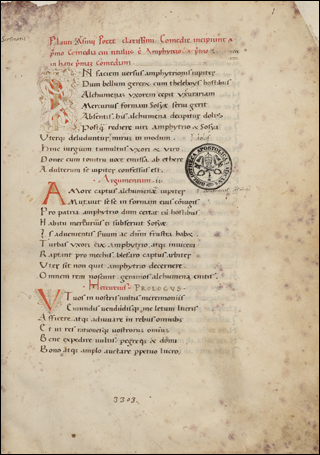 Plauti Asinij Poete clarissimi Comedie incipiunt a
p̃mo Comedia cui titulus ẽ Amphytrio a p̃mo
in hanc p̃mat Comediam
IN faciem uersus amphytrionis iupiter
Dum bellum gereret cum theleboys hostibus
Alchumenam uxorem cepit usurariam
Mercurius formam Sosiæ serui gerit
Absentis his alchumena decipitur dolis
Postq̃ rediere ueri amphytrio & Sosia
Uterq; deluduntur mirum in modum
Hinc iurgium tumultus uxori & uiro
Donec cum tonitru uoce missa ab ethere
Adulterum se iupiter confessus est
Argumentum
AMore captus alchumenæ iupiter
Mutauit se se in formam eius coniugis
Pro patria amphytrio dum cernit cũ hostibus
Habitu mercurius ei subseruit Sosiæ
Is aduenientis seruum ac dñm frustra habet
Turbas uxori ciet amphytrio atq; inuicem
Raptant pro mechis blefaro captus arbiter
Uter sit non quit amphytrio decernere
Omnem rem noscunt geminos alchumena enititur
Mercurius PROLOGUS
VT uos in uostris uultis mercimoniis
Emundis uendundisq; me letum lucris
Afficere atq; adiuuare in rebus omnibus
Et ut res rationesq; uostrorum omnium
Bene expedire uultis peregriq; & domi
Bonoq; atq; amplo auctare perpetuo lucro
3303